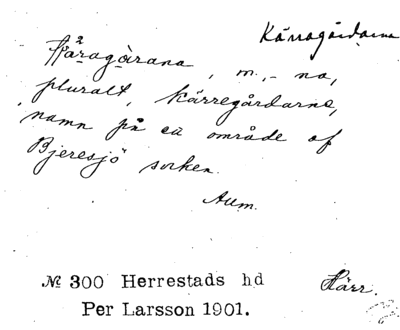 Kärragårdarna
Käragàrana, m., - na,
pluralt, Kärregårdarne,
namn på ett område af
Bjeresjö socken.
Aum.
№ 300 Herrestads hd
Härr.
Per Larsson 1901.